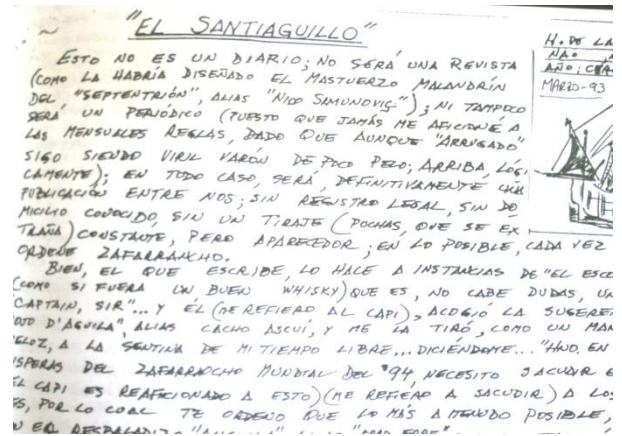 "EL SANTIAGUILLO"
H. DE LA
NAO
AÑO;
MARZO-93
ESTO NO ES UN DIARIO; NO SERÁ UNA REVISTA
(COMO LA HABRÍA DISEÑADO EL MASTUERZO MALANDRÍN
DEL "SEPTENTRIÓN", ALIAS "NICO SAMUNOVIC"); NI TAMPOCO
SERÁ UN PERIÓDICO (PUESTO QUE JAMÁS ME AFICIONÉ A
LAS MENSUALES REGLAS, DADO QUE AUNQUE "ARRUGADO"
SIGO SIENDO VIRIL VARÓN DE POCO PELO; ARRIBA, LÓGI
CAMENTE); EN TODO CASO, SERÁ, DEFINITIVAMENTE UNA
PUBLICACIÓN ENTRE NOS; SIN REGISTRO LEGAL, SIN DO
MICILIO CONOCIDO, SIN UN TIRAJE (POCHAS, QUE SE EX
TRAÑA) CONSTANTE, PERO APARECEDOR; EN LO POSIBLE, CADA VEZ
ORDENE ZAFARRANCHO.
BIEN, EL QUE ESCRIBE, LO HACE A INSTANCIAS DE "EL ESCO
(COMO SI FUERA UN BUEN WHISKY) QUE ES, NO CABE DUDAS, UN
"CAPTAIN, SIR"... Y ÉL (ME REFIERO AL CAPI), ACOGIÓ LA SUGEREN
OJO D'AGUILA", ALIAS CACHO ASCUÍ, Y ME LA TIRÓ, COMO UN MAN
ELOZ, A LA SENTINA DE MI TIEMPO LIBRE... DICIÉNDOME... "HNO. EN
ISPERAS DEL ZAFARRACHO MUNDIAL DEL '94, NECESITO SACUDIR E
EL CAPI ES REAFICIONADO A ESTO) (ME REFIERO A SACUDIR) A LOS
ES, POR LO CUAL TE ORDENO QUE LO MÁS A MENUDO POSIBLE,